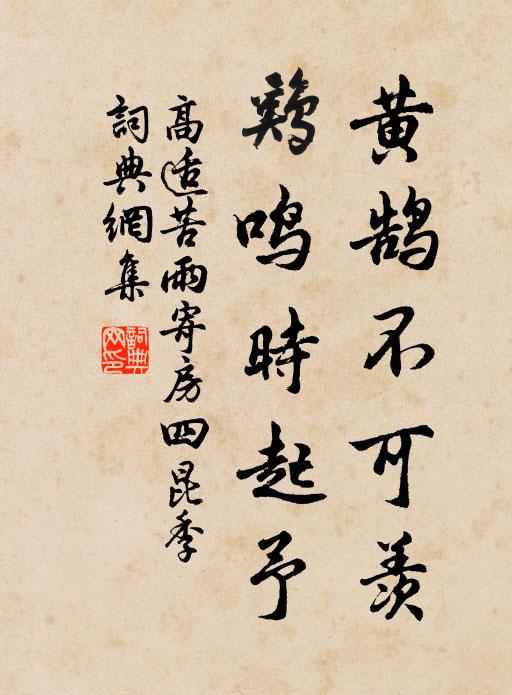 黄鹄不可羨
鷄鸣時起予
高适苦雨寄房四昆季
詞典網集
詞典网印